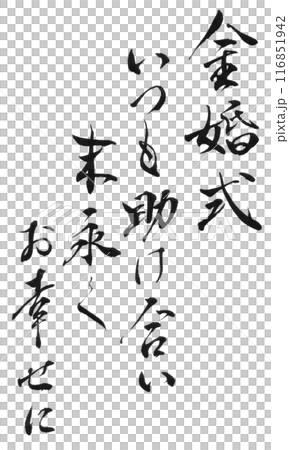 金婚式
いつも助け合い
末永く
お幸せに
116851942